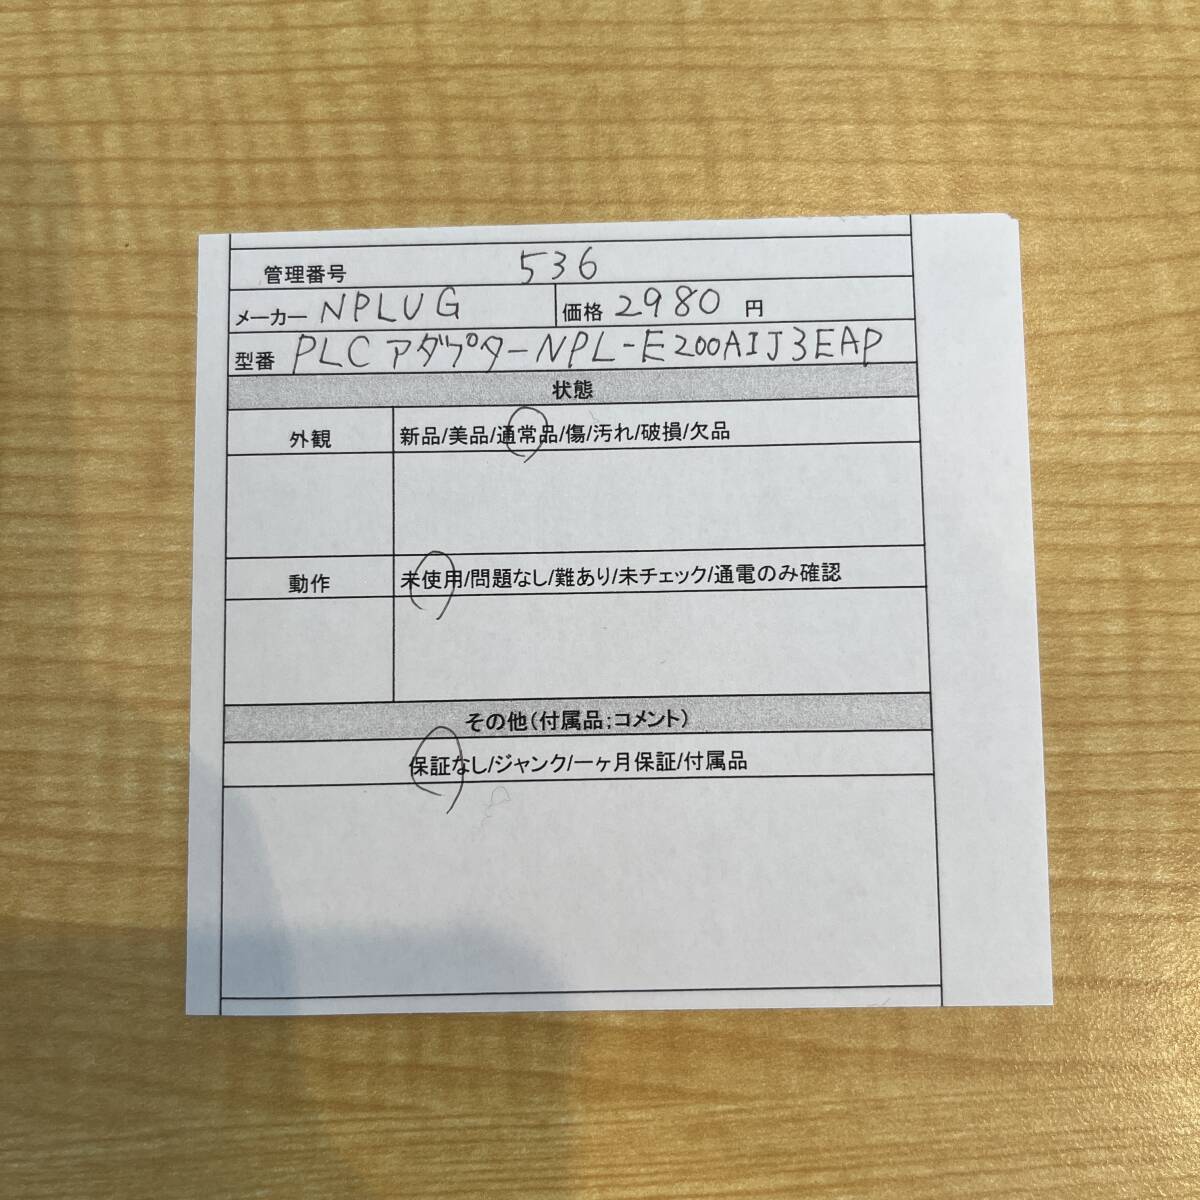 管理番号 536
メーカー NPLUG 価格 2980 円
型番 PLCアダプターNPL-E200AIJ3EAP
状態
外観 新品/美品/通常品/傷/汚れ/破損/欠品
動作 未使用/問題なし/難あり/未チェック/通電のみ確認
その他(付属品:コメント)
保証なし/ジャンク/一ヶ月保証/付属品